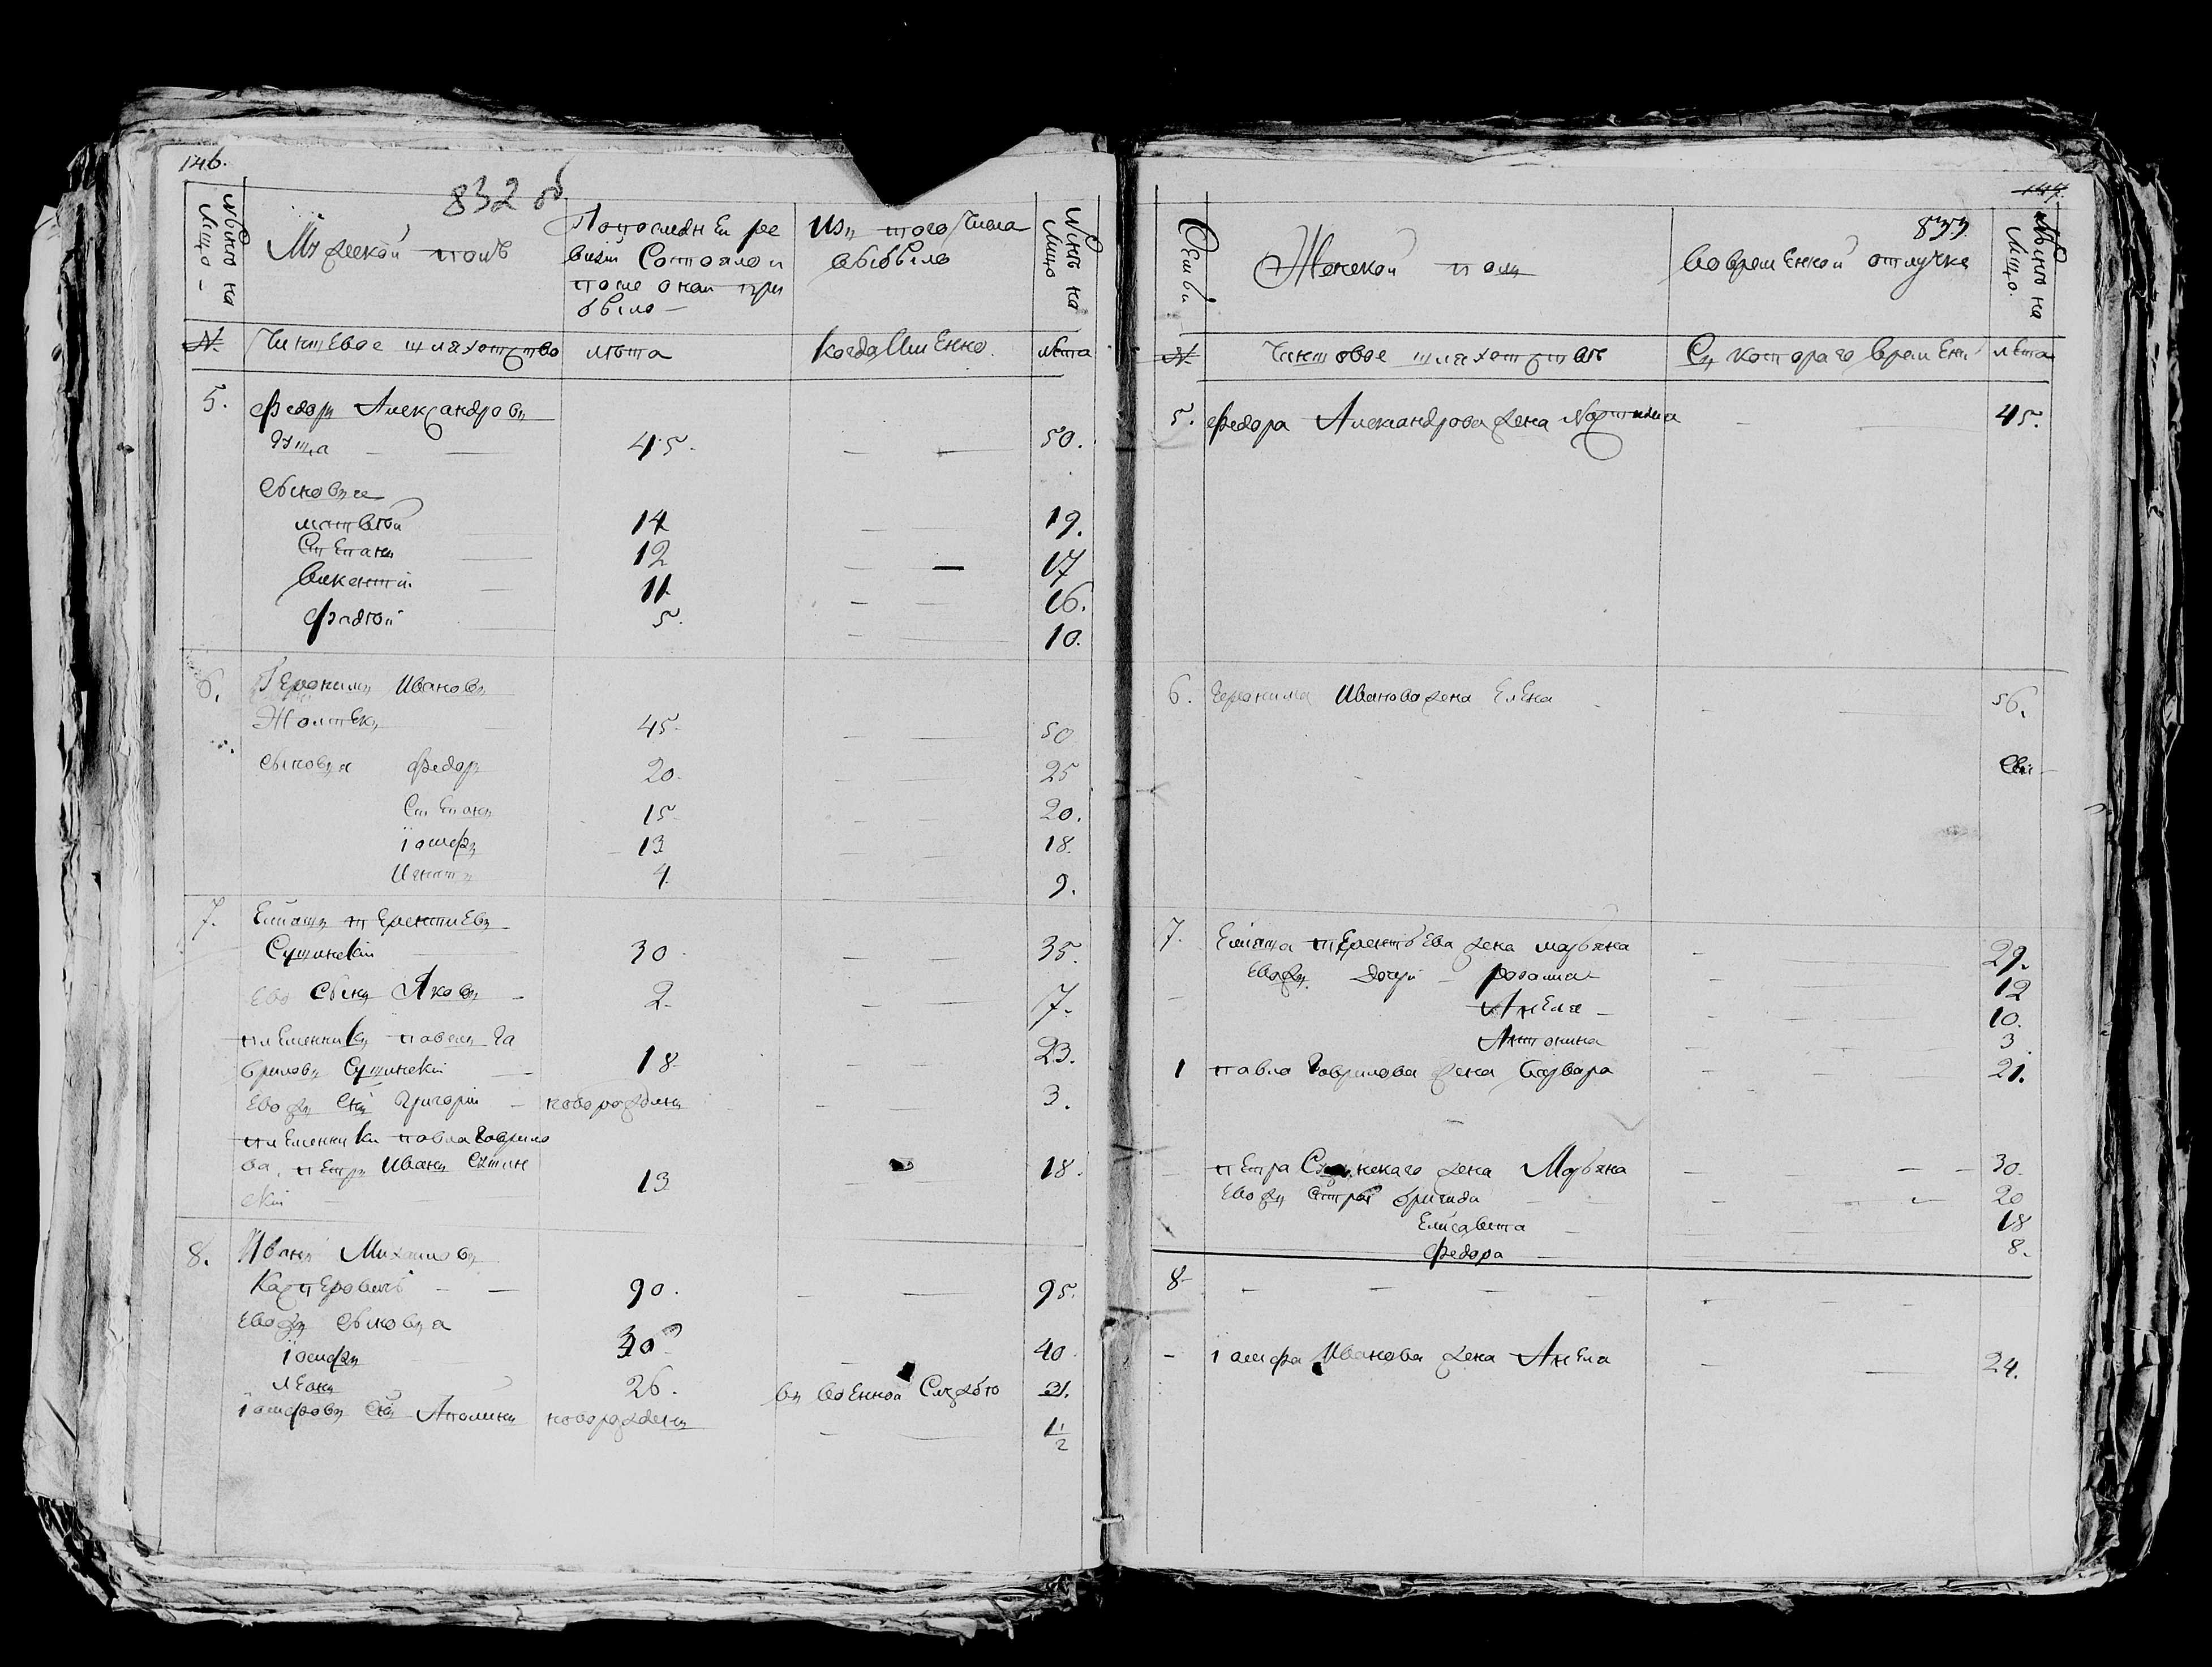 146.
832 об
Мужеской полъ
По последн Еи ре
визіи Состояло и
после онаи при
было —
Изъ того Числа
выбыло
Nынѣ на
Лицо
Чиншевое шляхотство
лѣта
Когда Имѣнно.
лѣта
5. Федоръ Александровъ
45. 50.
Сыновья
матвѣй 14 19.
Степанъ 12 17
Викентій 11 16.
Фадѣй 5. 10.
6. Геронимъ Ивановъ
45. 50
Сыновья Федоръ 20. 25
Степанъ 15 20.
іосифъ 13 18.
Игнатъ 4 9.
7. терентиевъ
30 35.
Ево Сынъ Яковъ 2. 7.
племенникъ павелъ Га
вриловъ 18 23.
Евожъ Сынъ Григорій — новорожденъ 3.
племенники павла Гаврило
ва, петръ Иванъ
скій 13 18.
8. Иванъ Михаиловъ
Касперовичъ 90. 95.
Евожъ Сыновья
іосифъ 30 40
леонъ 26. въ военной Службѣ 31.
іосифовъ Сынъ Аполинъ новорожденъ 1 1/2
147.
833.
Семьи
Женской полъ
Во времЕнной отлучке
Nынѣ на
Лицо.
Чиншовое шляхотство
Съ котораго врЕмЕни
лѣта
5. Федора Александрова жена 45.
6. Геронима Иванова жена Елена 56.
7. терентьЕва жена марьяна 29.
Евожъ дочери розалия 12
Анеля 10.
Антонина 3
1 павла Гаврилова жена Варвара 21.
петра жена Марьяна 30.
Евожъ Сестры бригида 20
Елисавета 18
Федора 8.
8
іосифа Иванова жена Анеля 24.